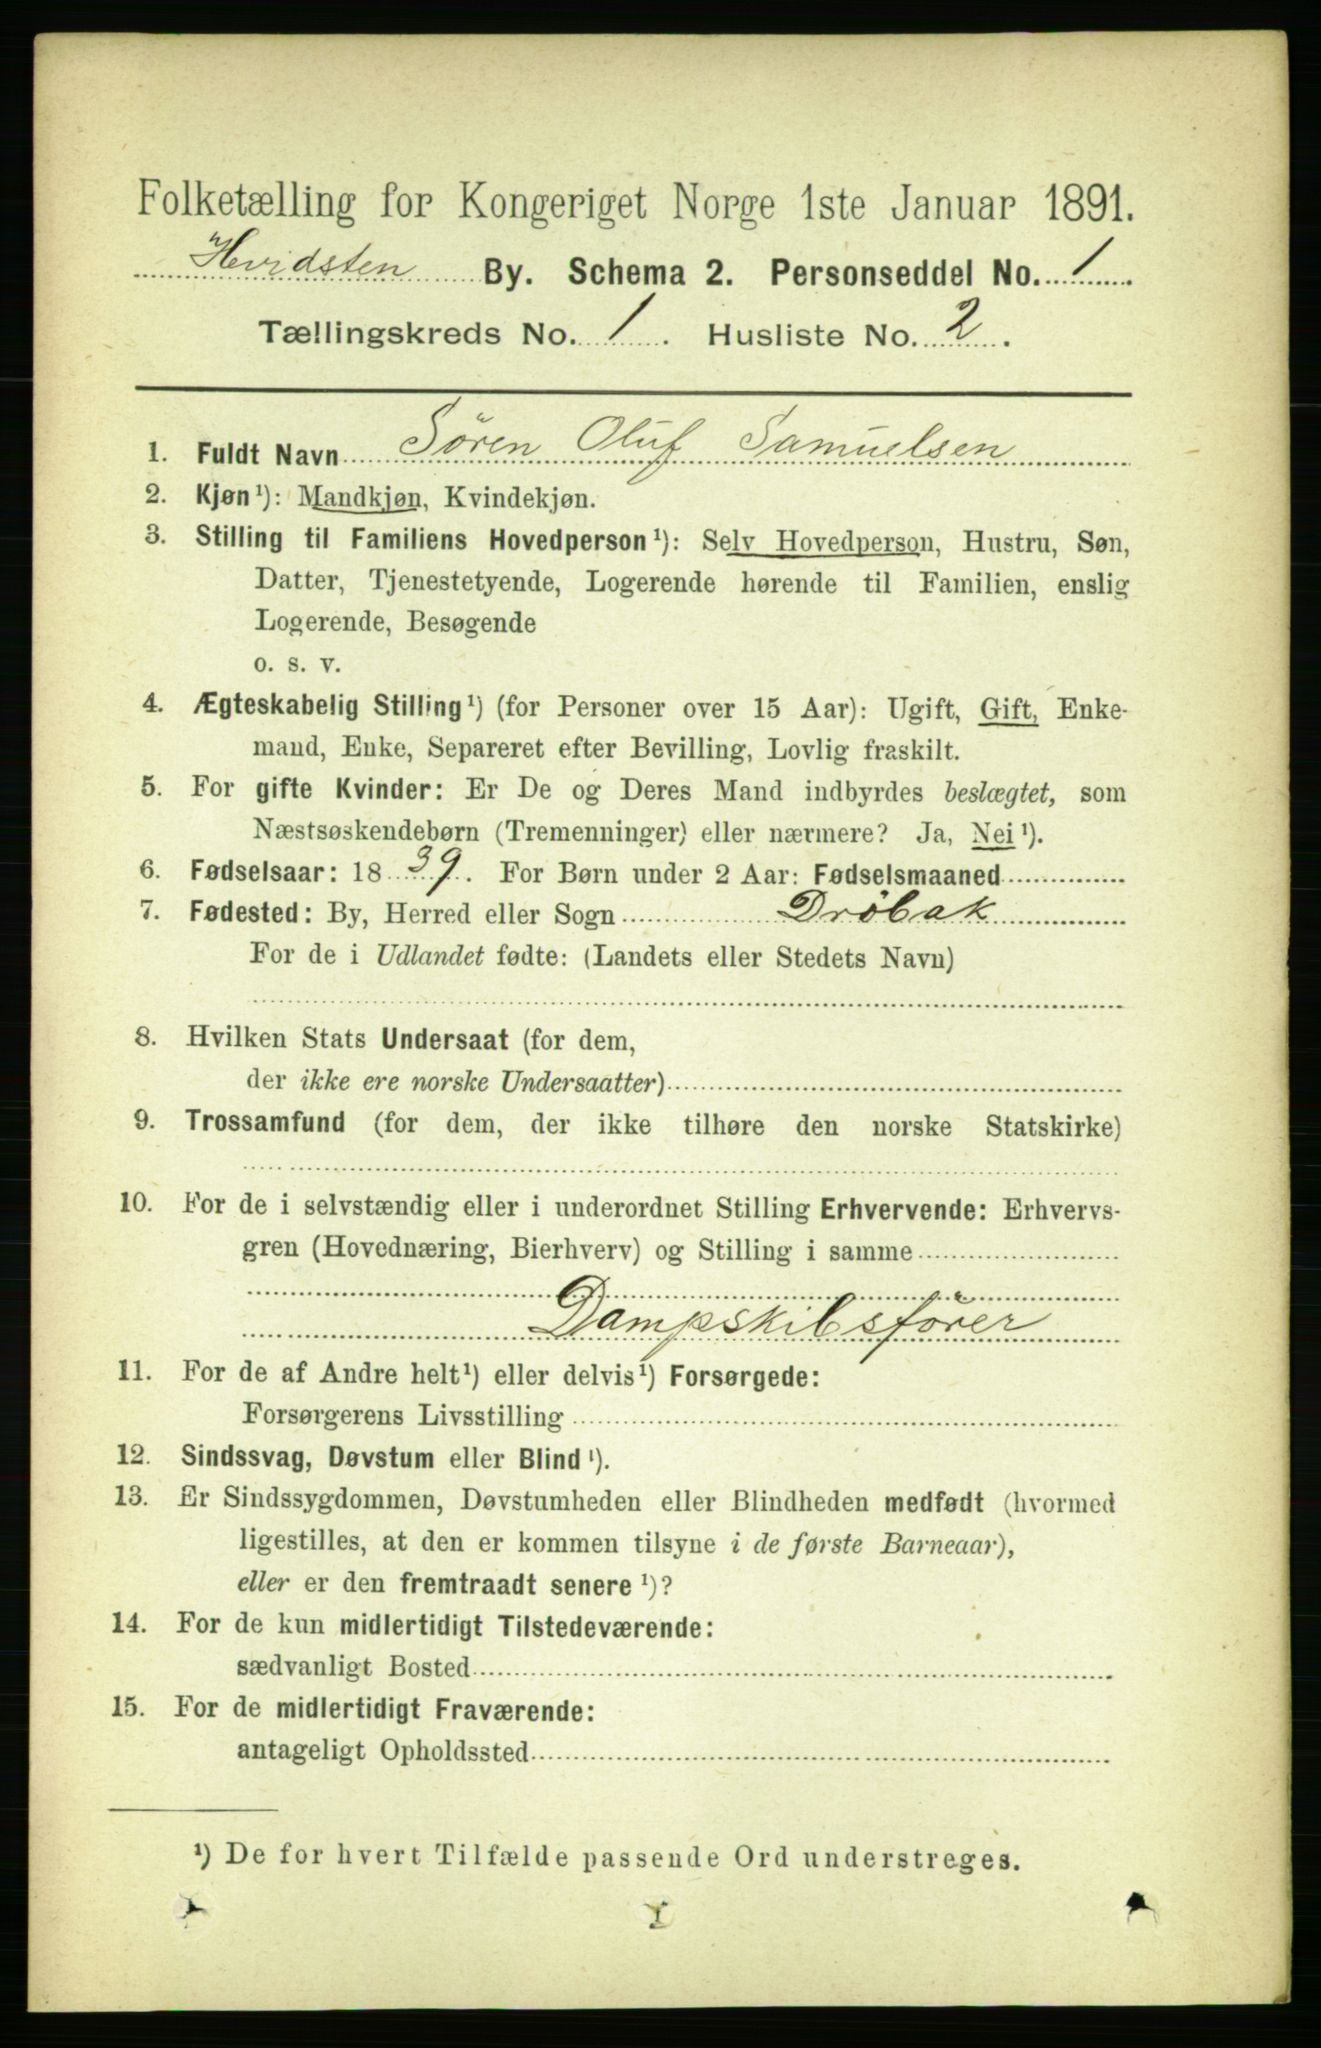 Folketælling for Kongeriget Norge 1ste Januar 1891.
Hvidsten By. Schema 2. Personseddel No. 1.
Tællingskreds No. 1. Husliste No. 2.
1. Fuldt Navn Sören Oluf Samuelsen
2. Kjøn¹): Mandkjøn, Kvindekjøn.
3. Stilling til Familiens Hovedperson¹): Selv Hovedperson, Hustru, Søn,
Datter, Tjenestetyende, Logerende hørende til Familien, enslig
Logerende, Besøgende
o. s. v.
4. Ægteskabelig Stilling¹) (for Personer over 15 Aar): Ugift, Gift, Enke-
mand, Enke, Separeret efter Bevilling, Lovlig fraskilt.
5. For gifte Kvinder: Er De og Deres Mand indbyrdes beslægtet, som
Næstsøskendebørn (Tremenninger) eller nærmere? Ja, Nei¹).
6. Fødselsaar: 1839. For Børn under 2 Aar: Fødselsmaaned
7. Fødested: By, Herred eller Sogn Dröbak
For de i Udlandet fødte: (Landets eller Stedets Navn)
8. Hvilken Stats Undersaat (for dem,
der ikke ere norske Undersaatter)
9. Trossamfund (for dem, der ikke tilhøre den norske Statskirke)
10. For de i selvstændig eller i underordnet Stilling Erhvervende: Erhvervs-
gren (Hovednæring, Bierhverv) og Stilling i samme
Dampskibsförer
11. For de af Andre helt¹) eller delvis¹) Forsørgede:
Forsørgerens Livsstilling
12. Sindssvag, Døvstum eller Blind¹).
13. Er Sindssygdommen, Døvstumheden eller Blindheden medfødt (hvormed
ligestilles, at den er kommen tilsyne i de første Barneaar),
eller er den fremtraadt senere¹)?
14. For de kun midlertidigt Tilstedeværende:
sædvanligt Bosted
15. For de midlertidigt Fraværende:
antageligt Opholdssted
¹) De for hvert Tilfælde passende Ord understreges.